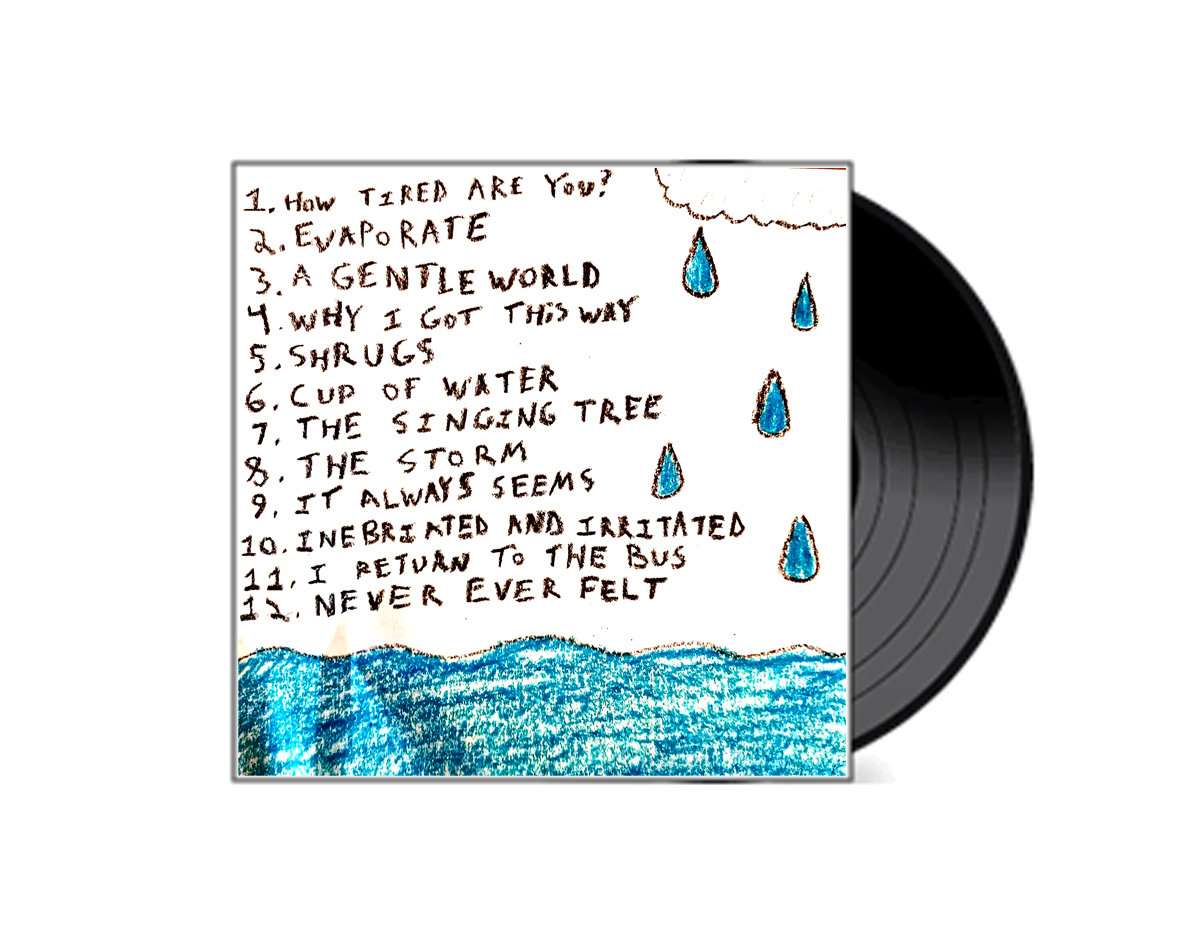 1. How TIRED ARE You?
2. EVAPoRATE
3. A GENTLE WORLD
4. WHY I GoT THiS WAY
5. SHRUGS
6. CUP OF WATER
7. THE SINGING TREE
8. THE STORM
9. IT ALWAYS SEEMS
10. INEBRIATED AND IRRITATED
11. I RETURN To THE BUS
12. NEVER EVER FELT